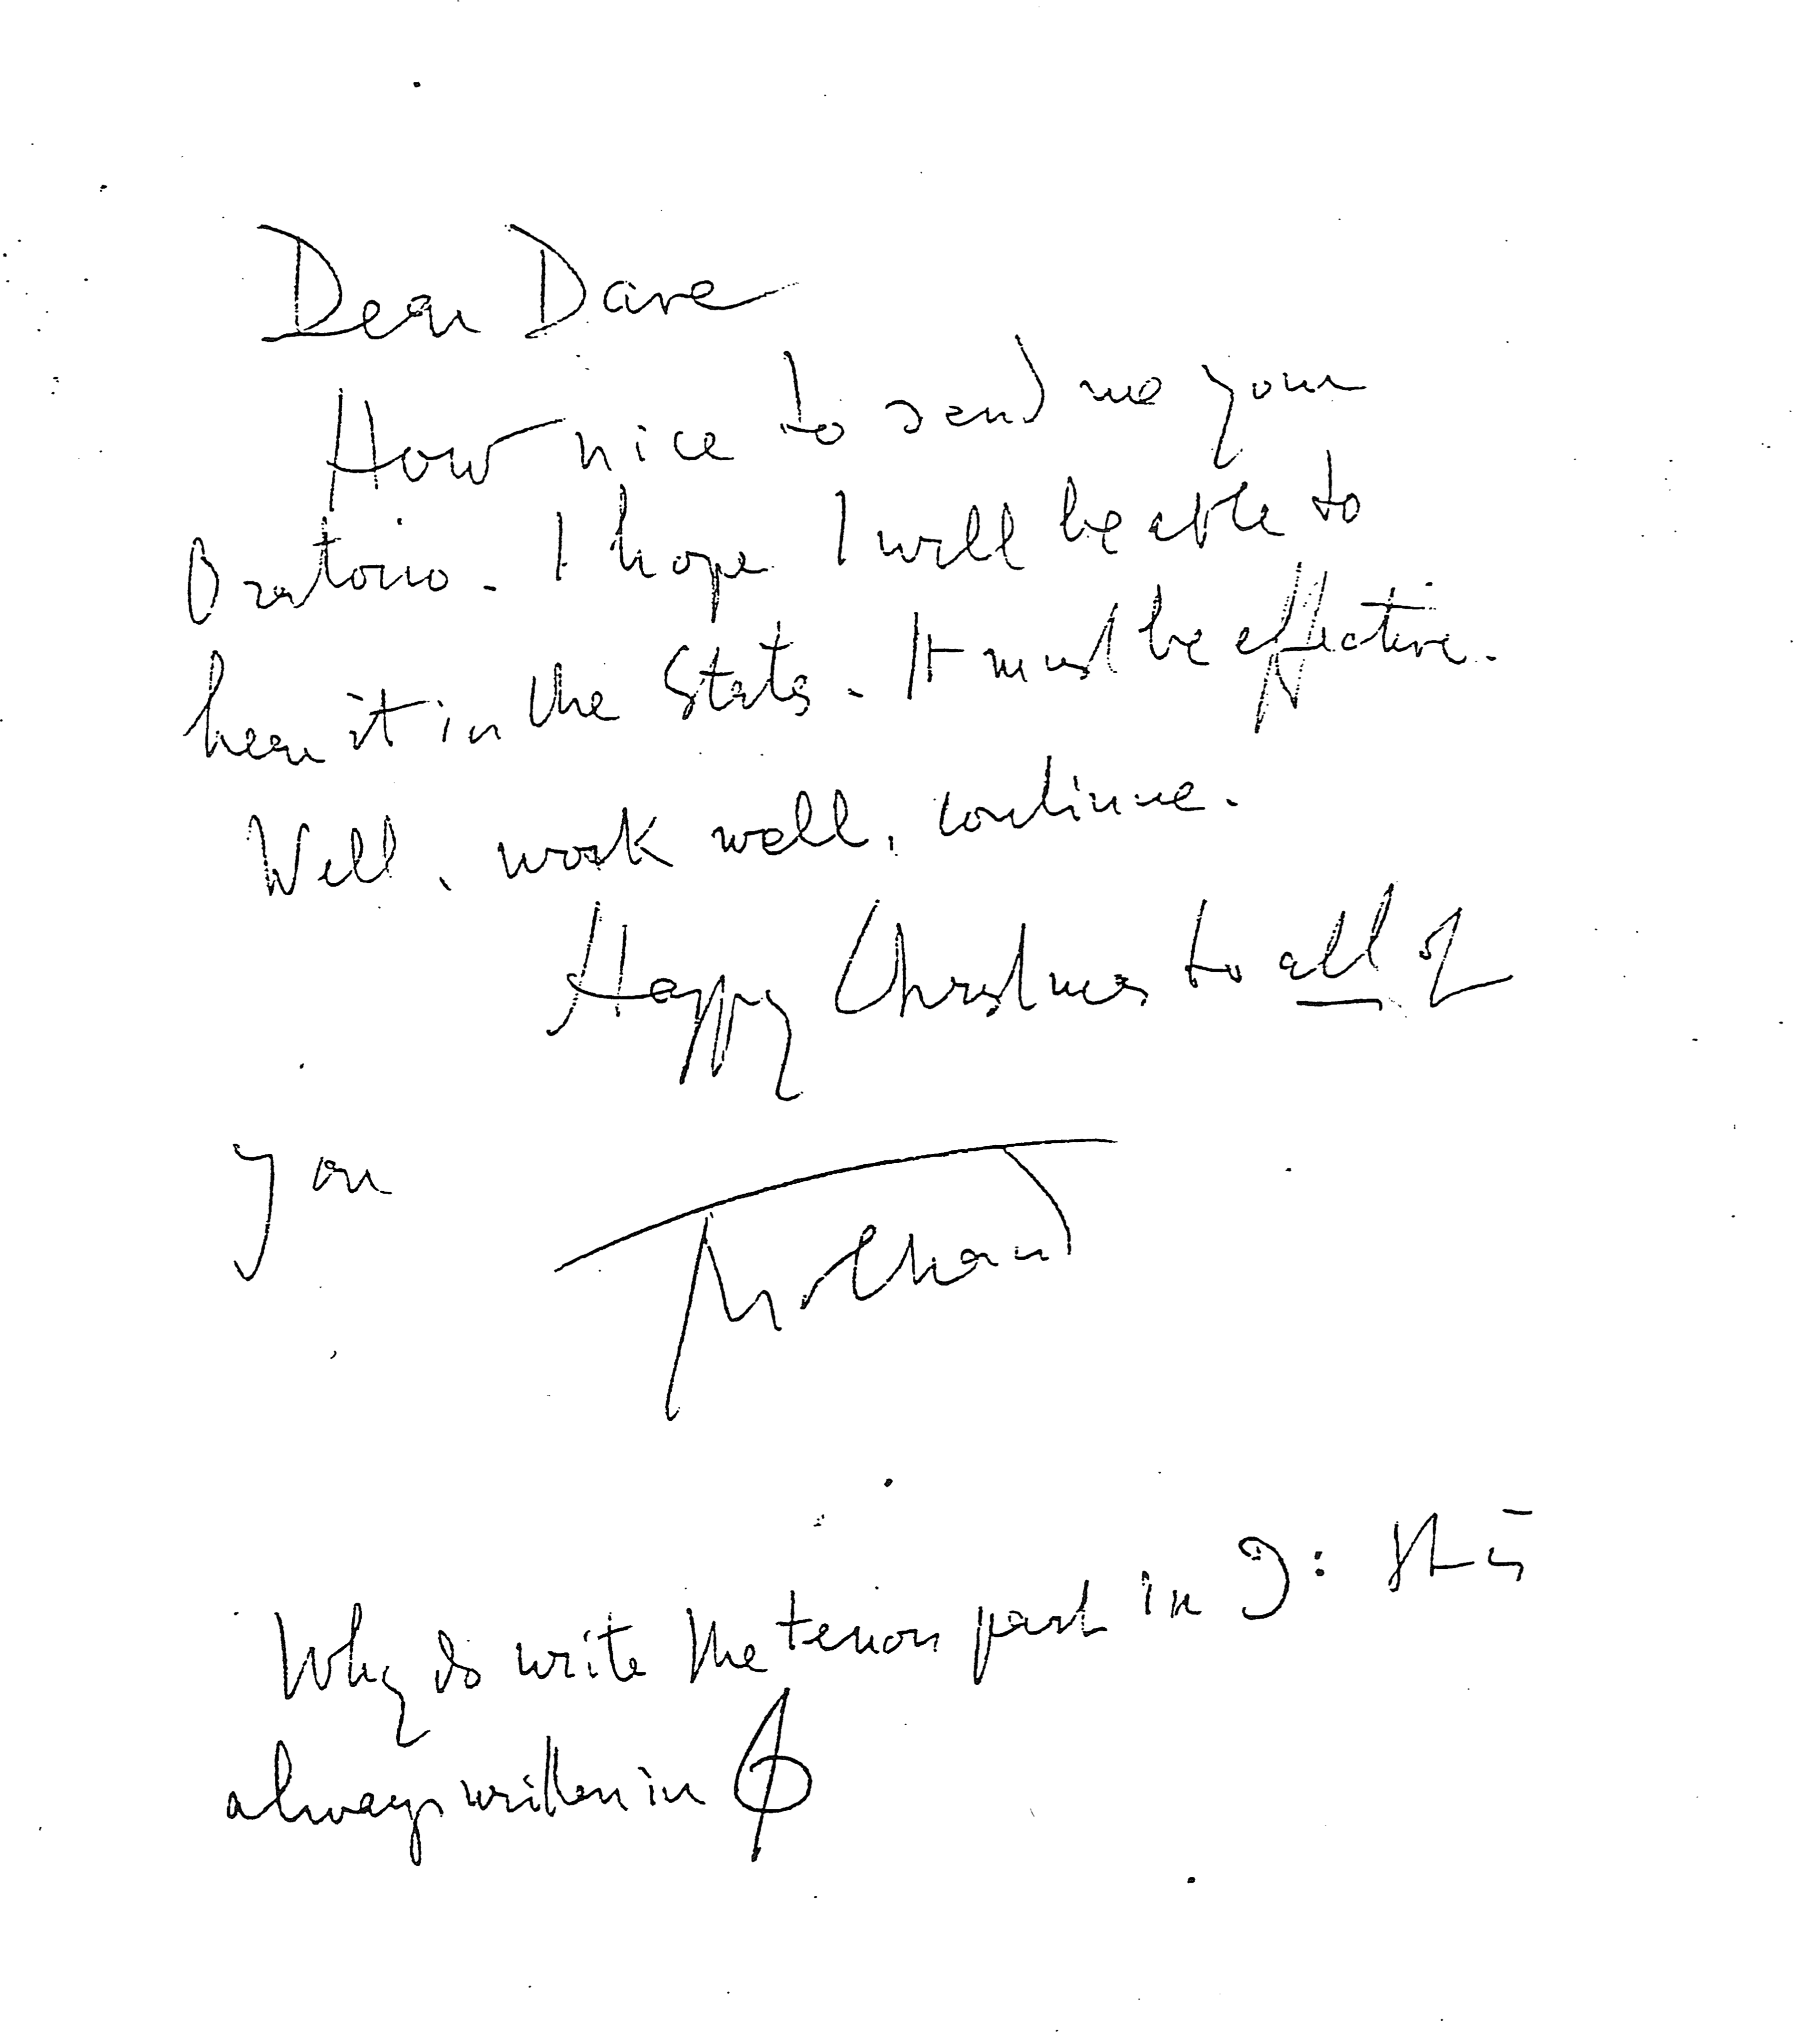 Dear Dave
How nice to send me your
Oratorio - I hope I will be able to
hear it in the States - It must be effective -
Well, work well, continue -
Happy Christmas to all of
you
Milhaud
Why do write the tenor part in 𝄢 It is
always written in 𝄞